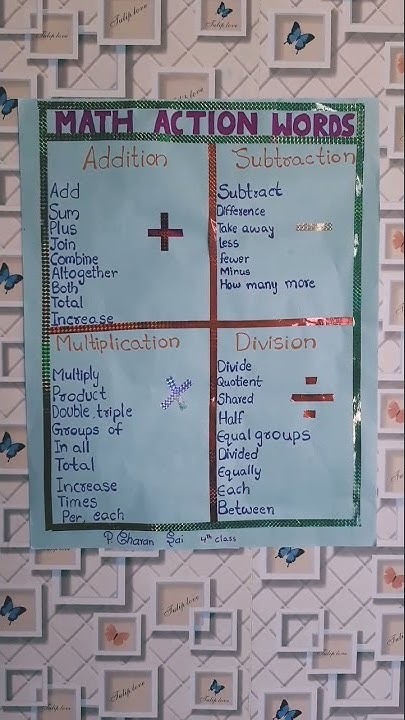 MATH ACTION WORDS
Addition
Add
Sum
Plus
Join
Combine
Altogether
Both
Total
Increase
+
Subtraction
Subtract
Difference
Take away
less
fewer
Minus
How many more
−
Multiplication
Multiply
Product
Double, triple
Groups of
In all
Total
Increase
Times
Per, each
×
Division
Divide
Quotient
Shared
Half
Equal groups
Divided
Equally
Each
Between
÷
P. Charan Sai 4th class
Tulip love
Tulip love
Tulip love
Tulip love
Tulip love
Tulip love
Tulip love